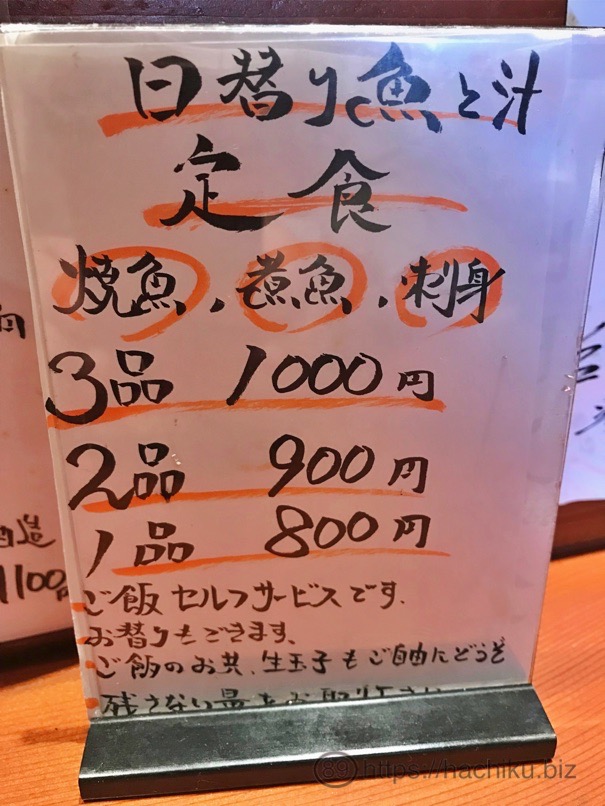 日替り魚と汁
定食
焼魚、煮魚、刺身
3品 1000円
2品 900円
1品 800円
ご飯セルフサービスです.
お替りもできます、
ご飯のお共、生玉子もご自由にどうぞ
残さない量をお取り下さい
造
1100
89 https://hachiku.biz